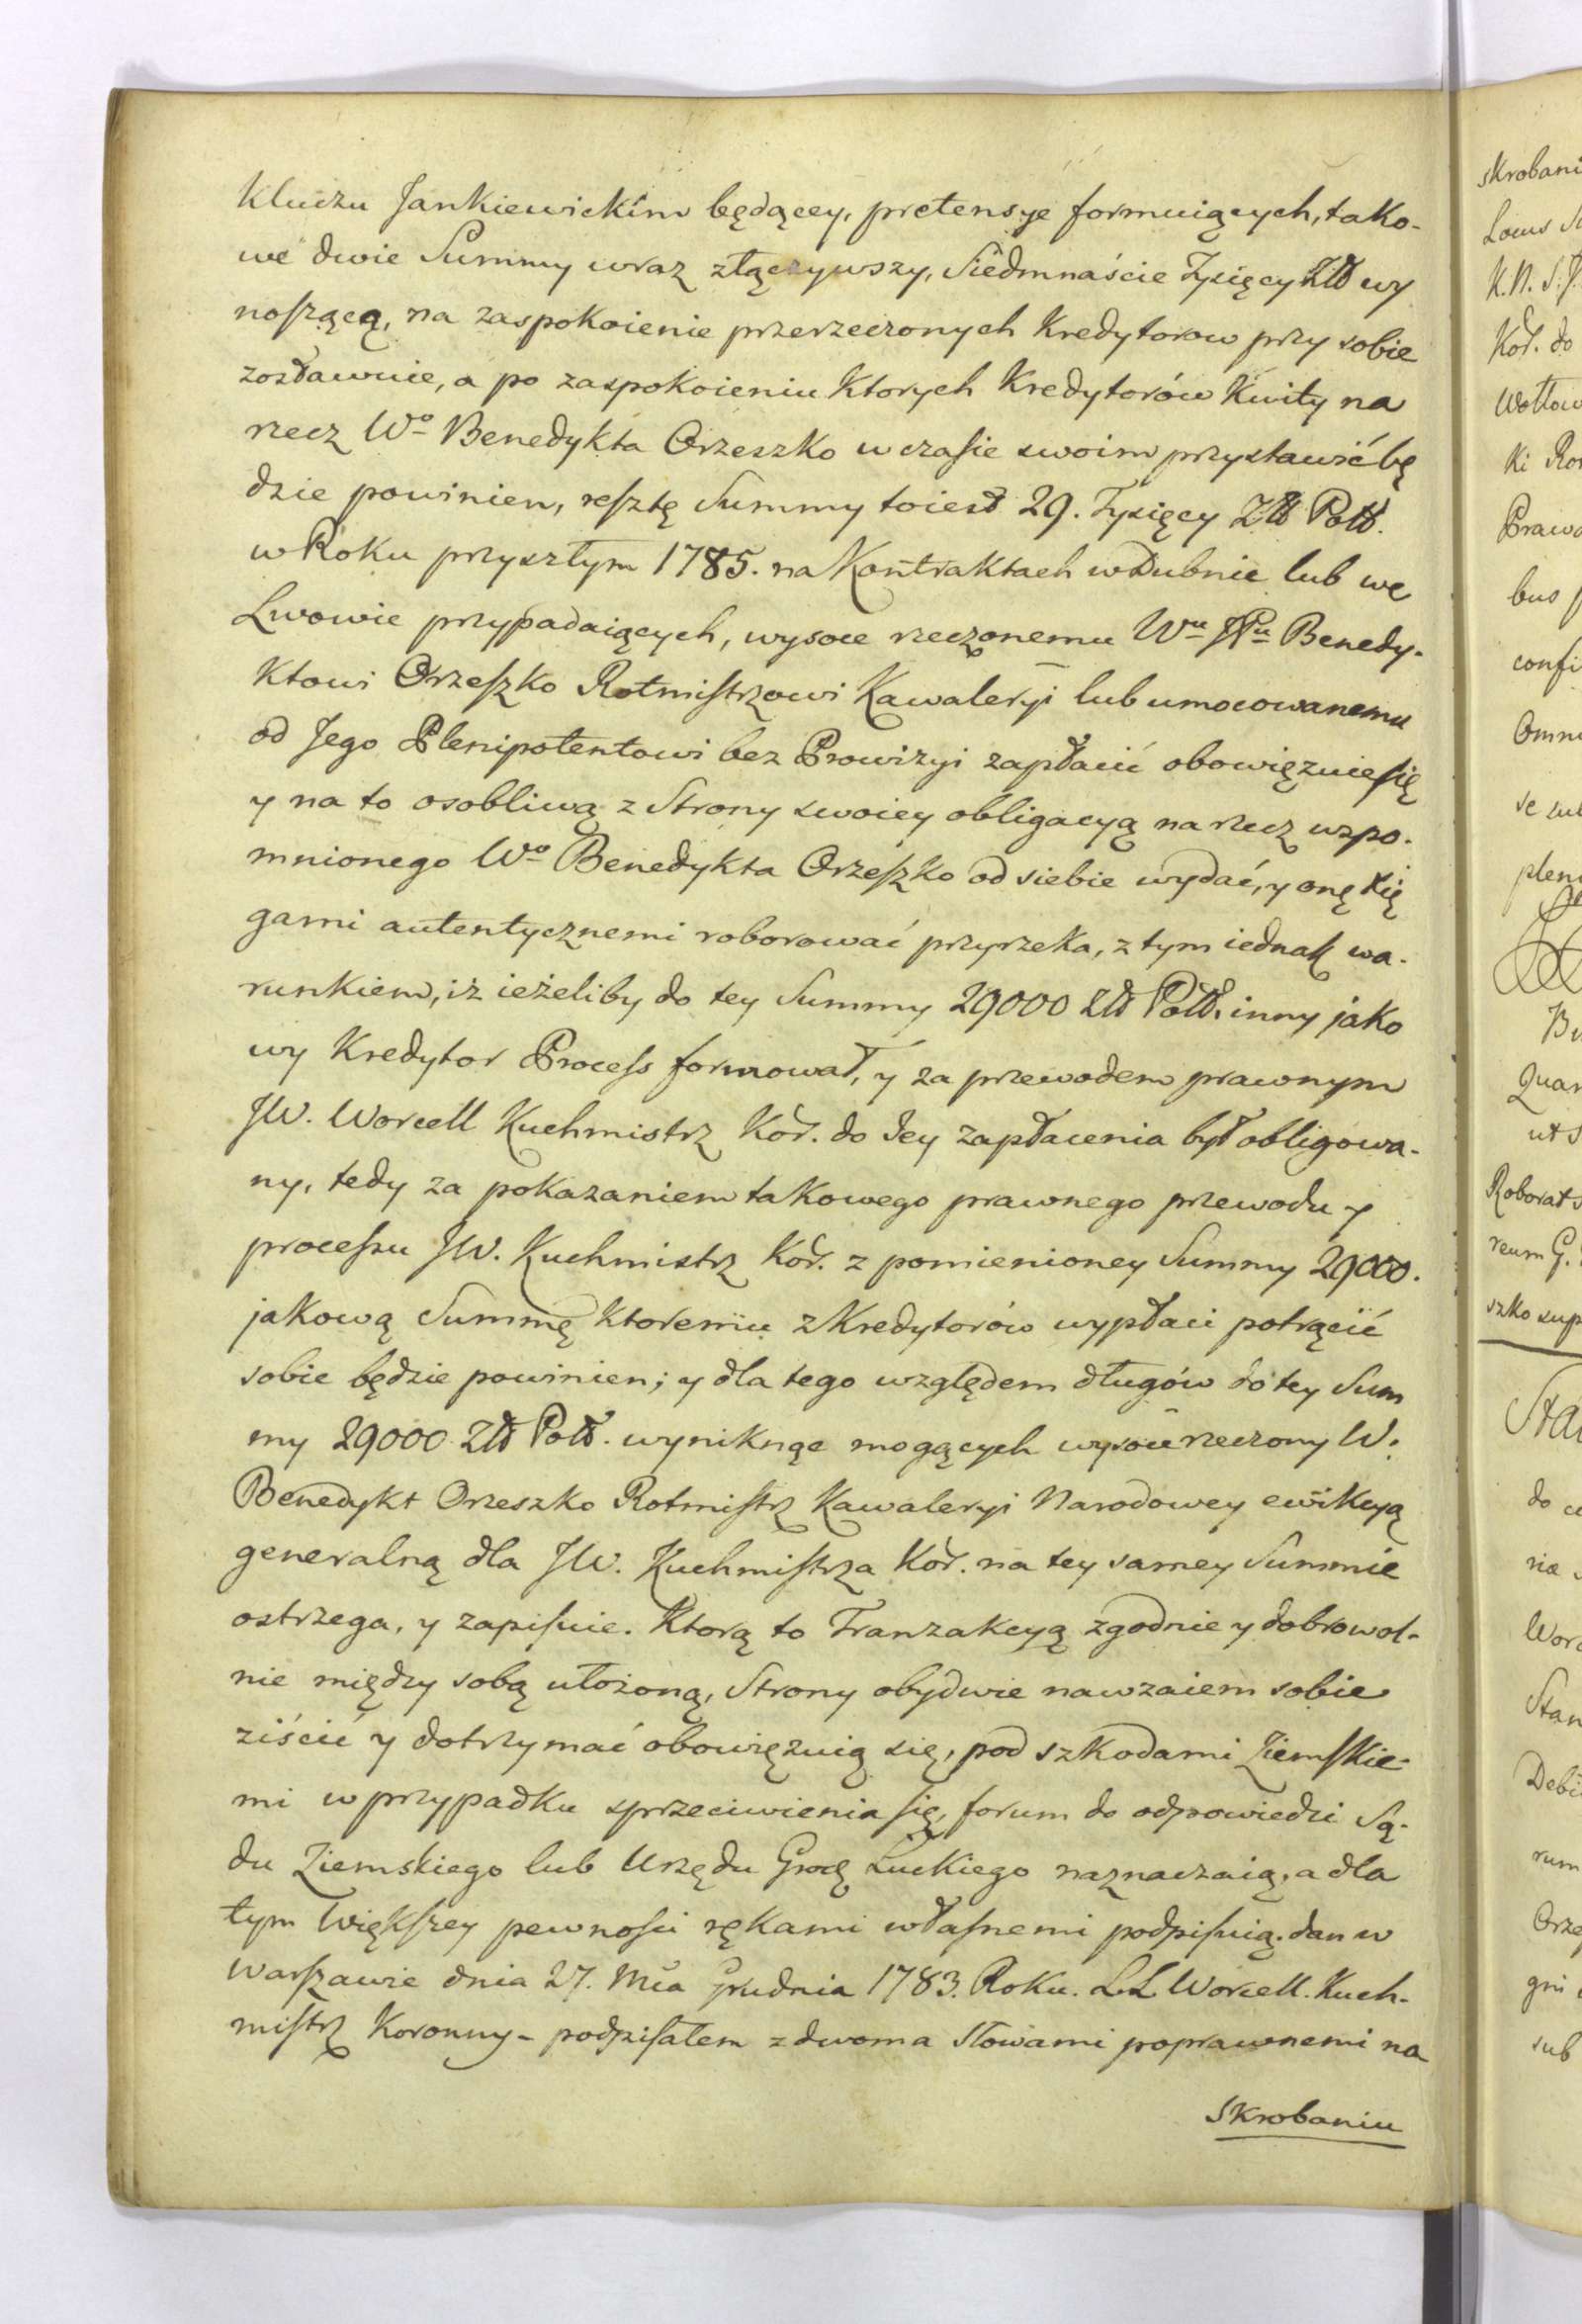 Kluczu Jankiewickim będącey, pretensye formuiących, tako-
we dwie Summy wraz złączywszy, Siedmnaście Tysięcy Złł wy
noszącą, na zaspokoienie przerzeczonych Kredytorow przy sobie
zostawuie, a po zaspokoieniu Ktorych Kredytorów Kwity na
rzecz Wo Benedykta Orzeszko w czasie swoim przystawić bę
dzie powinien, resztę Summy toiest 29. Tysięcy Złł Poll.
w Roku przyszłym 1785. na Kontraktach w Dubnie lub we
Lwowie przypadaiących, wysoce rzeczonemu Wu JPu Benedy-
ktowi Orzeszko Rotmistrzowi Kawaleryi lub umocowanemu
od Jego Plenipotentowi bez Prowizyi zapłacić obowięzuie się
y na to osobliwą z Strony swoiey obligacyą na rzecz wspo-
mnionego Wo Benedykta Orzeszko od siebie wydać, y onę Xię
gami autentycznemi roborować przyrzeka, z tym iednak wa-
runkiem, iż ieżeliby do tey Summy 29000 Złł Poll. inny jako
wy Kredytor Process formował, y za przewodem prawnym
JW. Worcell Kuchmistrz Kor. do Jey zapłacenia był obligowa-
ny, tedy za pokazaniem takowego prawnego przewodu y
processu JW. Kuchmistrz Kor. z pomienioney Summy 29000.
jakową Summę Ktoremu z Kredytorów wypłaci potrącić
sobie będzie powinien; y dla tego względem długów do tey Sum
my 29000 Złł Poll. wyniknąc mogących wysoce rzeczony W.
Benedykt Orzeszko Rotmistrz Kawaleryi Narodowey ewikcyą
generalną dla JW. Kuchmistrza Kor. na tey samey Summie
ostrzega, y zapisuie. Ktorą to Tranzakcyą zgodnie y dobrowol-
nie między sobą ułożoną, Strony obydwie nawzaiem sobie
ziścić y dotrzymać obowięzuią się, pod szkodami Ziemskie-
mi w przypadku sprzeciwienia się, forum do odpowiedzi Są-
du Ziemskiego lub Urzędu Grodz Łuckiego naznaczaią, a dla
tym Większey pewności rękami własnemi podpisuią. dan w
Warszawie dnia 27. Mca Grudnia 1783. Roku. L.L Worcell. Kuch-
mistrz Koronny - podpisałem z dwoma słowami poprawnemi na
skrobaniu